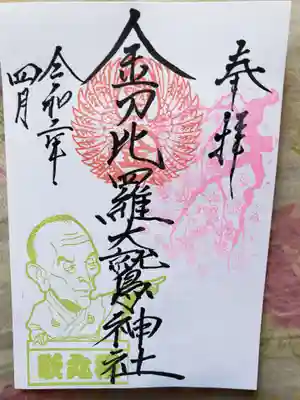 奉拝
金刀比羅大鷲神社
令和二年
四月